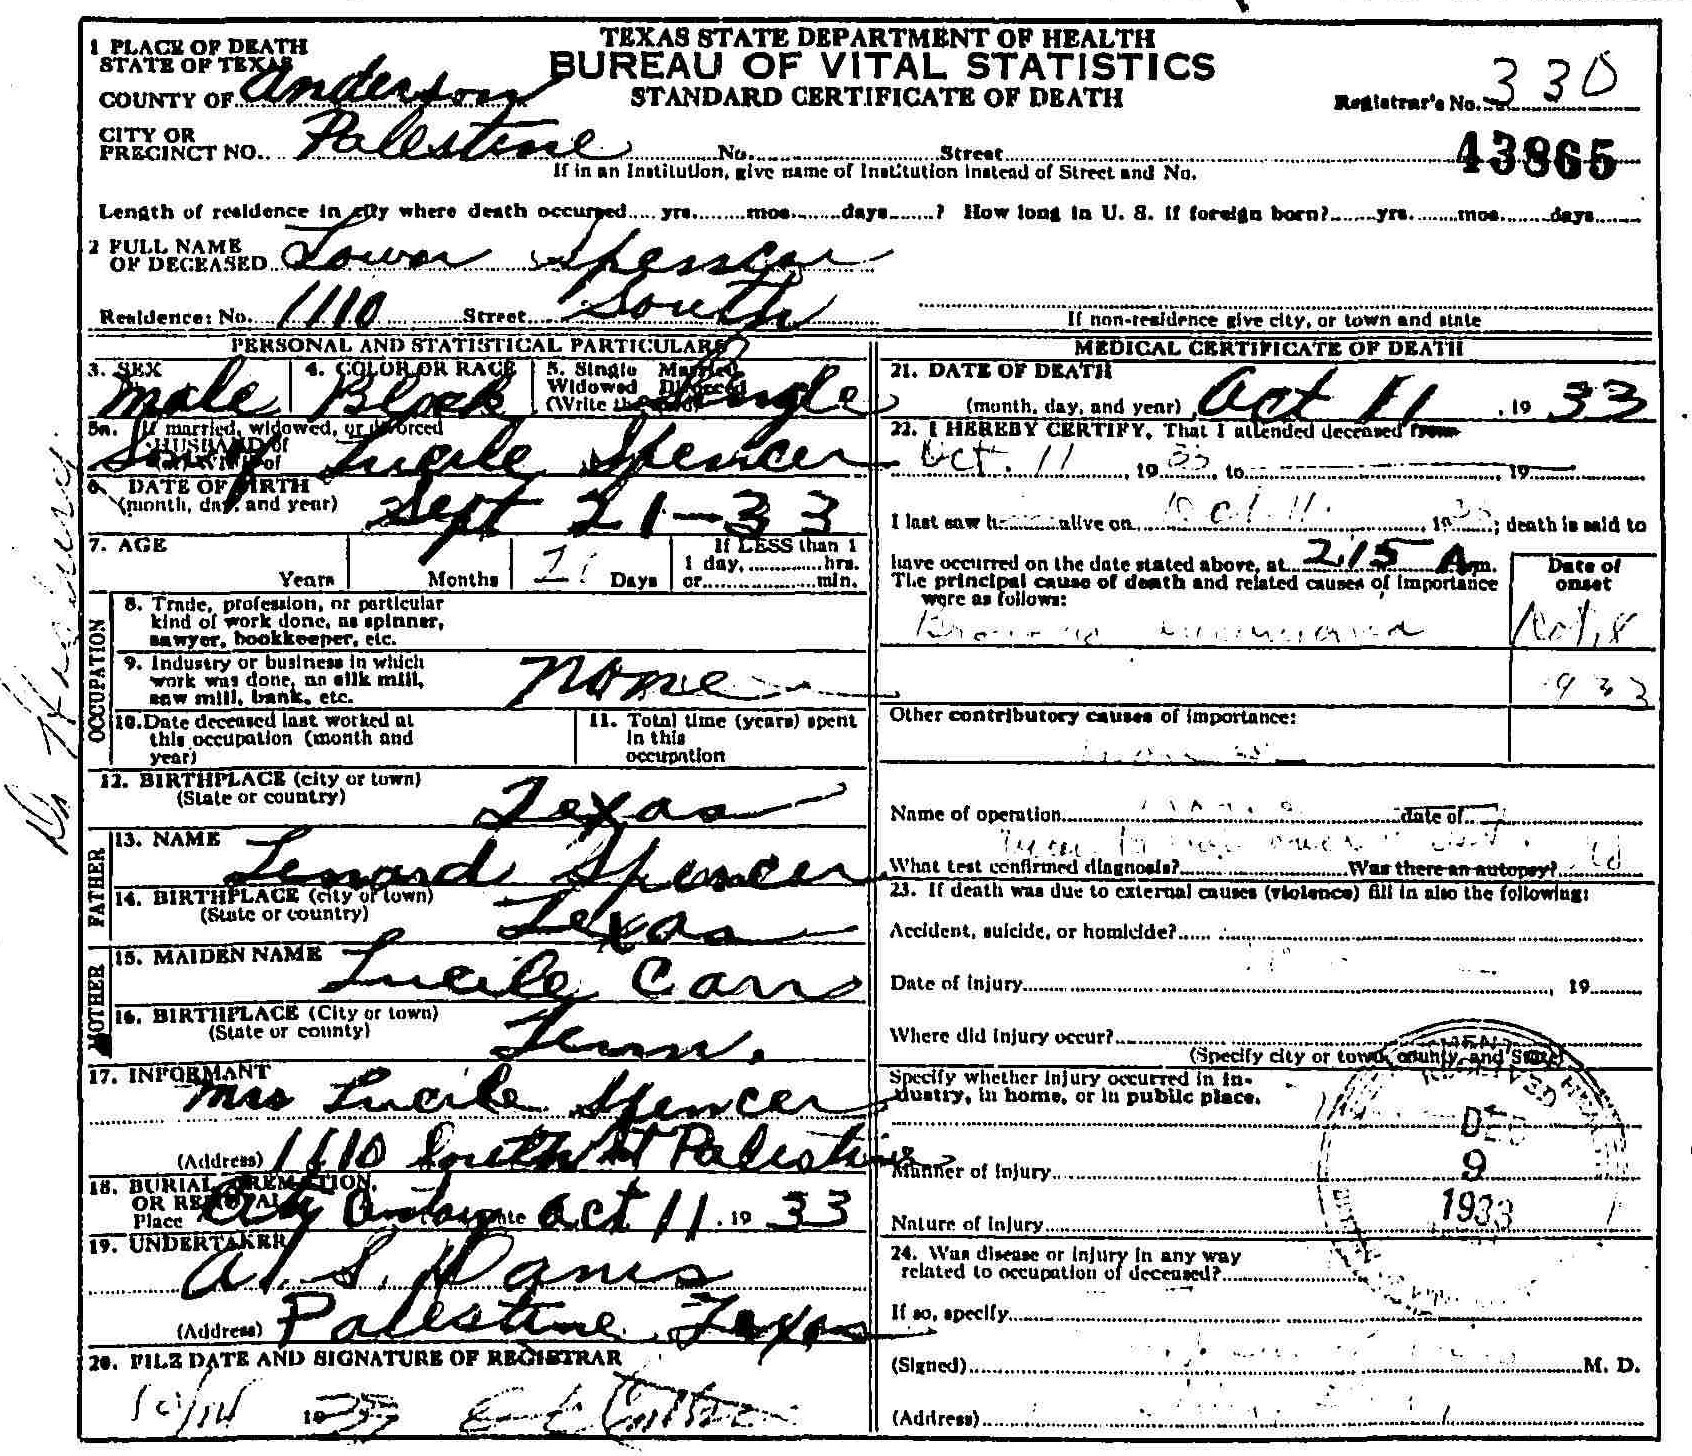 TEXAS STATE DEPARTMENT OF HEALTH
BUREAU OF VITAL STATISTICS
STANDARD CERTIFICATE OF DEATH
1 PLACE OF DEATH
STATE OF TEXAS
COUNTY OF Anderson
Registrar's No. 330
CITY OR PRECINCT NO. Palestine No. Street
43865
If in an Institution, give name of Institution instead of Street and No.
Length of residence in city where death occurred yrs. mos. days ? How long in U. S. if foreign born? yrs. mos. days
2 FULL NAME
OF DECEASED Spencer
Residence: No. 1110 Street South
If non-residence give city, or town and state
PERSONAL AND STATISTICAL PARTICULARS
3. SEX Male
4. COLOR OR RACE Black
5. Single Married
Widowed Divorced
(Write the word) Single
5a. If married, widowed, or divorced
HUSBAND of
(or) WIFE of
Lucile Spencer
6. DATE OF BIRTH
(month, day, and year) Sept 21-33
7. AGE
Years Months Days
If LESS than 1
1 day, hrs.
or min.
OCCUPATION
8. Trade, profession, or particular
kind of work done, as spinner,
sawyer, bookkeeper, etc.
9. Industry or business in which
work was done, as silk mill,
saw mill, bank, etc.
None
10. Date deceased last worked at
this occupation (month and
year)
11. Total time (years) spent
in this
occupation
12. BIRTHPLACE (city or town)
(State or country) Texas
FATHER
13. NAME
Lenard Spencer
14. BIRTHPLACE (city or town)
(State or country) Texas
MOTHER
15. MAIDEN NAME
Lucile Carr
16. BIRTHPLACE (City or town)
(State or county) Tenn.
17. INFORMANT
Mrs Lucile Spencer
(Address) 1110 South St Palestine
18. BURIAL, CREMATION,
OR REMOVAL
Place City Date Oct 11, 19 33
19. UNDERTAKER
A. S.
(Address) Palestine Texas
20. FILE DATE AND SIGNATURE OF REGISTRAR
10/14 1933
MEDICAL CERTIFICATE OF DEATH
21. DATE OF DEATH
(month, day, and year) Oct 11, 19 33
22. I HEREBY CERTIFY, That I attended deceased from
Oct. 11, 19 33, to 19
I last saw h alive on Oct. 11, 1933; death is said to
have occurred on the date stated above, at 2:15 A.m.
The principal cause of death and related causes of importance
were as follows:
Date of
onset
Oct. 8
933
Other contributory causes of importance:
Name of operation date of
What test confirmed diagnosis? Was there an autopsy?
23. If death was due to external causes (violence) fill in also the following:
Accident, suicide, or homicide?
Date of injury , 19
Where did injury occur?
(Specify city or town, county, and State)
Specify whether injury occurred in in-
dustry, in home, or in public place.
Manner of injury
Nature of injury
DEC
9
1933
24. Was disease or injury in any way
related to occupation of deceased?
If so, specify
(Signed) M. D.
(Address)